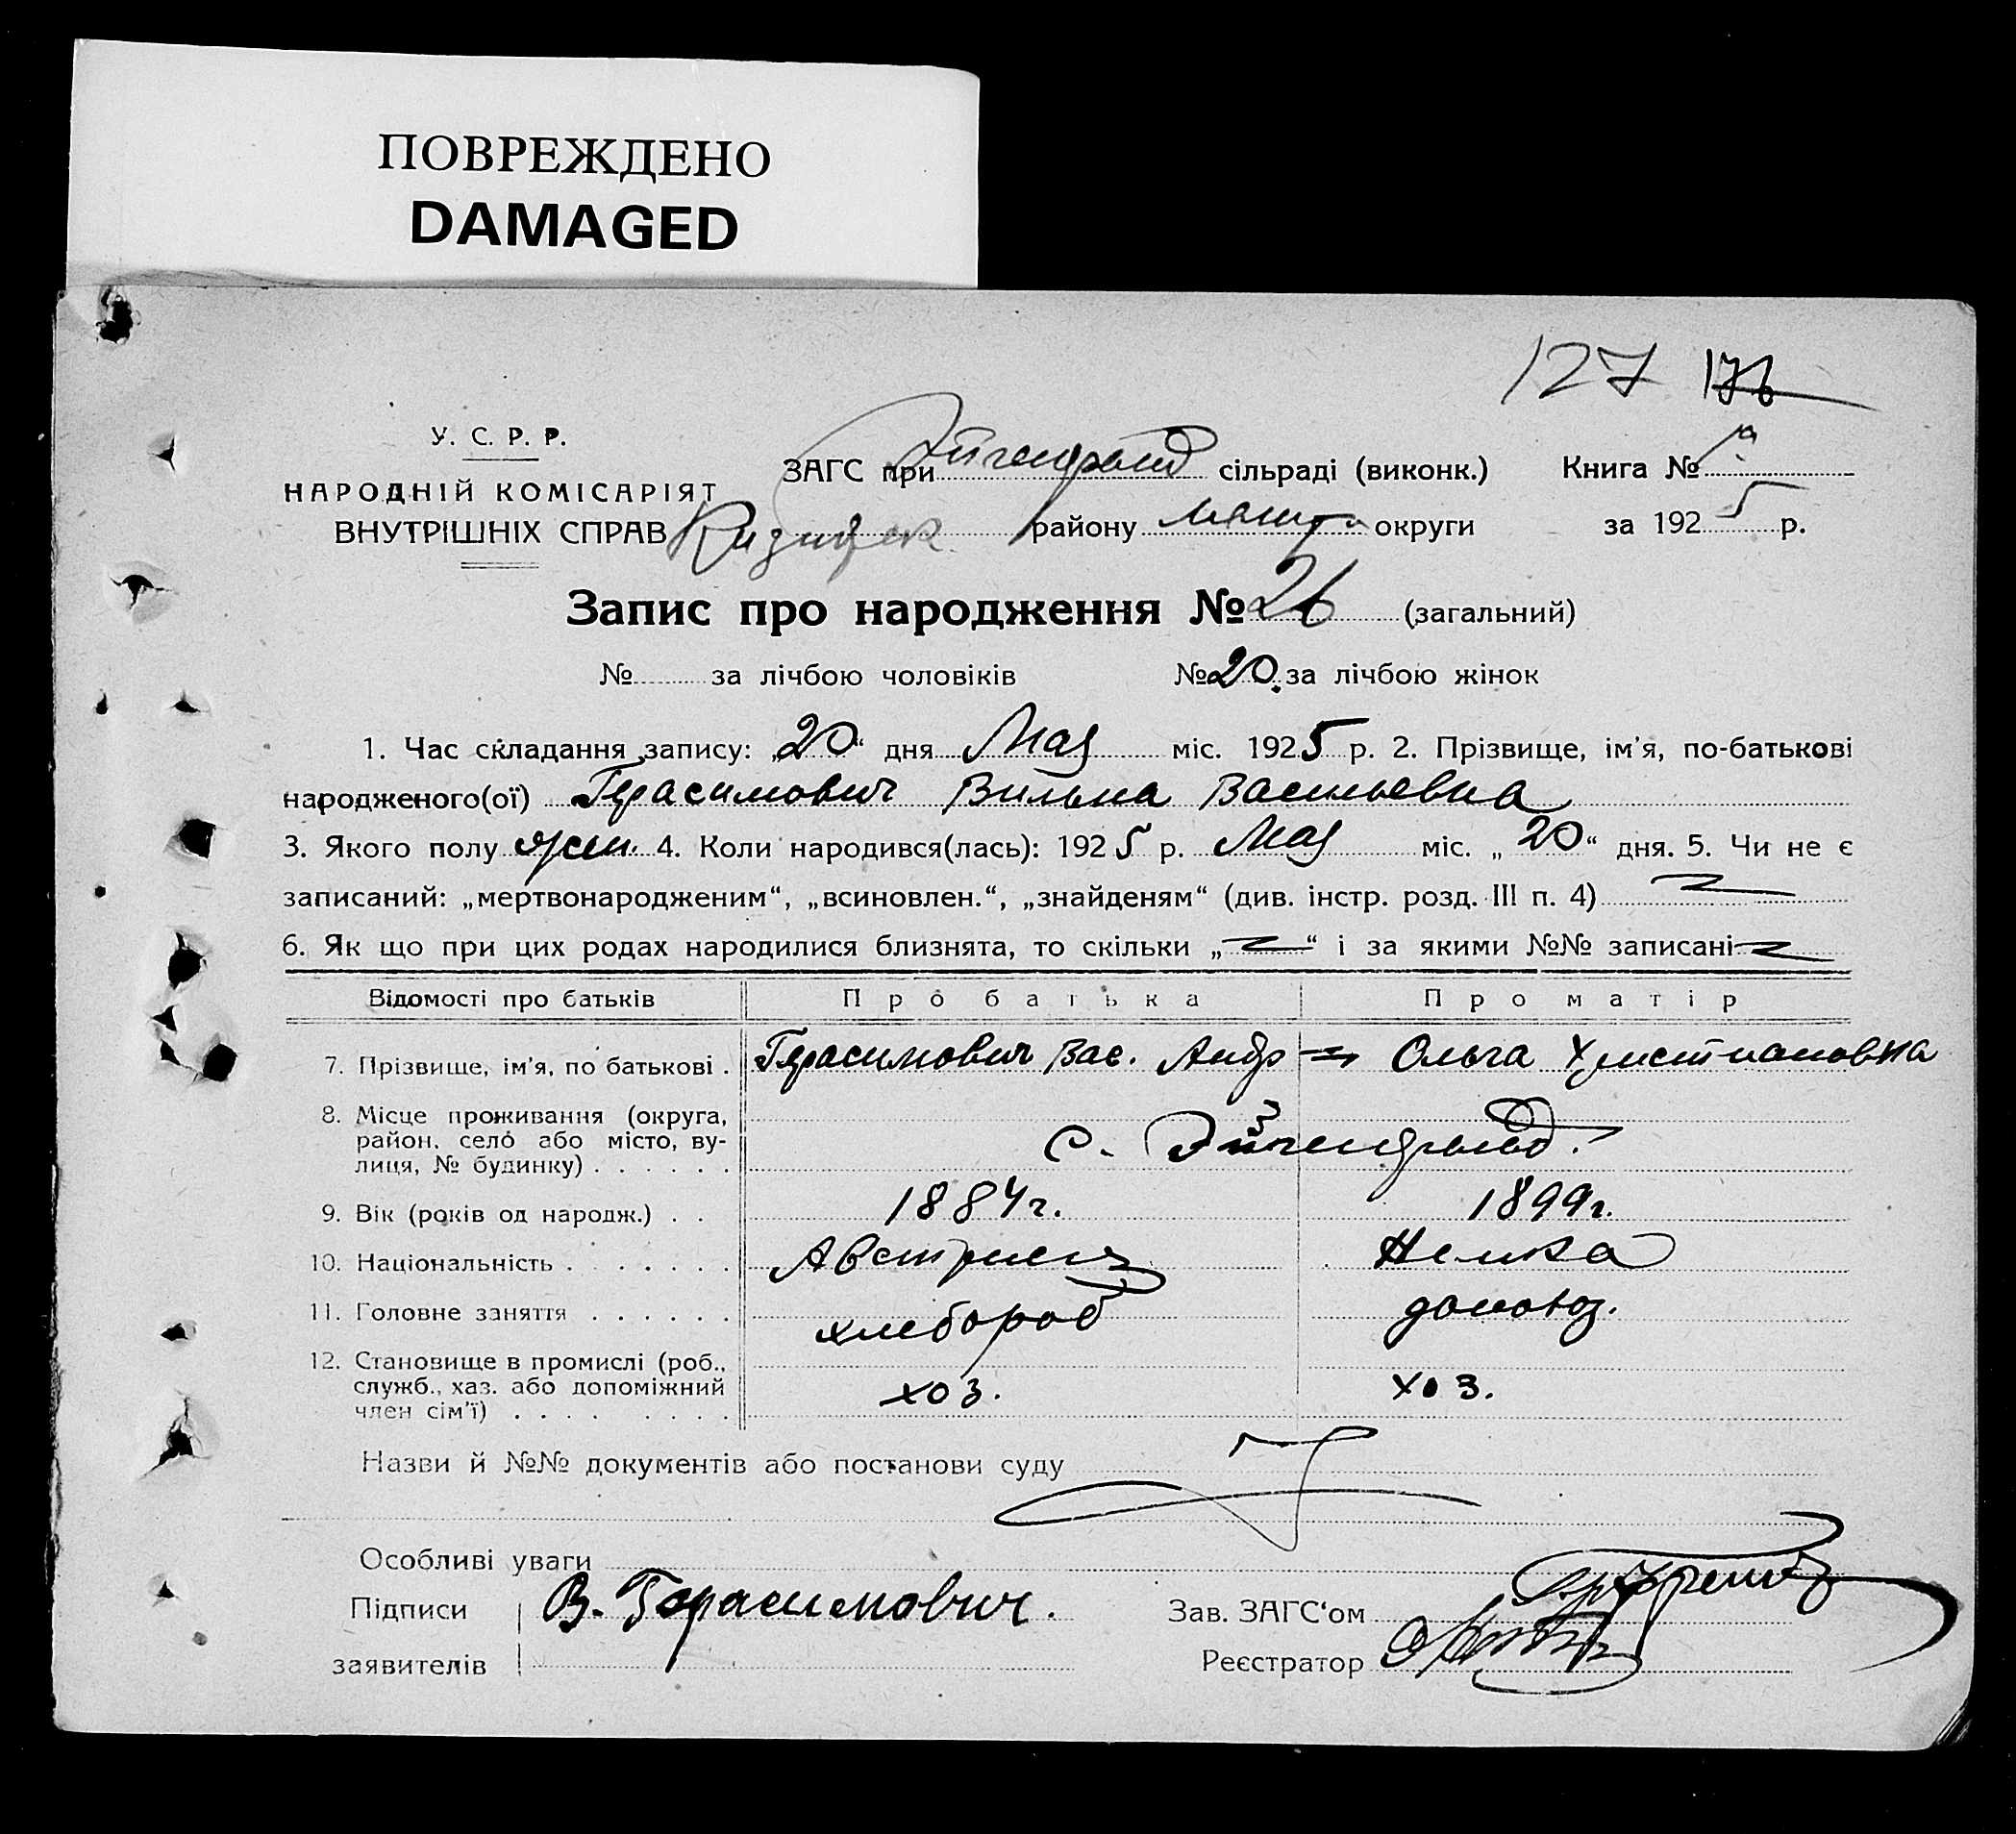 ПОВРЕЖДЕНО
DAMAGED
127 176
У. С. Р. Р.
НАРОДНІЙ КОМІСАРІЯТ
ВНУТРІШНІХ СПРАВ
ЗАГС при Эйгенфельд сільраді (виконк.) Книга №
району округи за 1925 р.
Запис про народження № 26 (загальний)
№ за лічбою чоловіків № 20. за лічбою жінок
1. Час складання запису: „20“ дня Мая міс. 1925 р. 2. Прізвище, ім'я, по-батькові
народженого(ої) Герасимович Вильма Васильевна
3. Якого полу жен. 4. Коли народився(лась): 1925 р. Мая міс. „20“ дня. 5. Чи не є
записаний: „мертвонародженим“, „всиновлен.“, „знайденям“ (див. інстр. розд. III п. 4)
6. Як що при цих родах народилися близнята, то скільки „ “ і за якими №№ записані
Відомості про батьків Про батька Про матір
7. Прізвище, ім'я, по батькові . Герасимович Вас. Андр = Ольга Христиановна
8. Місце проживання (округа,
район, село або місто, ву-
лиця, № будинку) . . . . . . с. Эйгенфельд.
9. Вік (років од народж.) . . 1884г. 1899г.
10. Національність . . . . . . . Австриец Немка
11. Головне заняття . . . . . . хлебороб домохоз.
12. Становище в промислі (роб.,
служб., хаз. або допоміжний
член сім'ї) . . . . . . . . хоз. хоз.
Назви й №№ документів або постанови суду
Особливі уваги
Підписи В. Герасимович. Зав. ЗАГС‘ом
заявителів Реєстратор